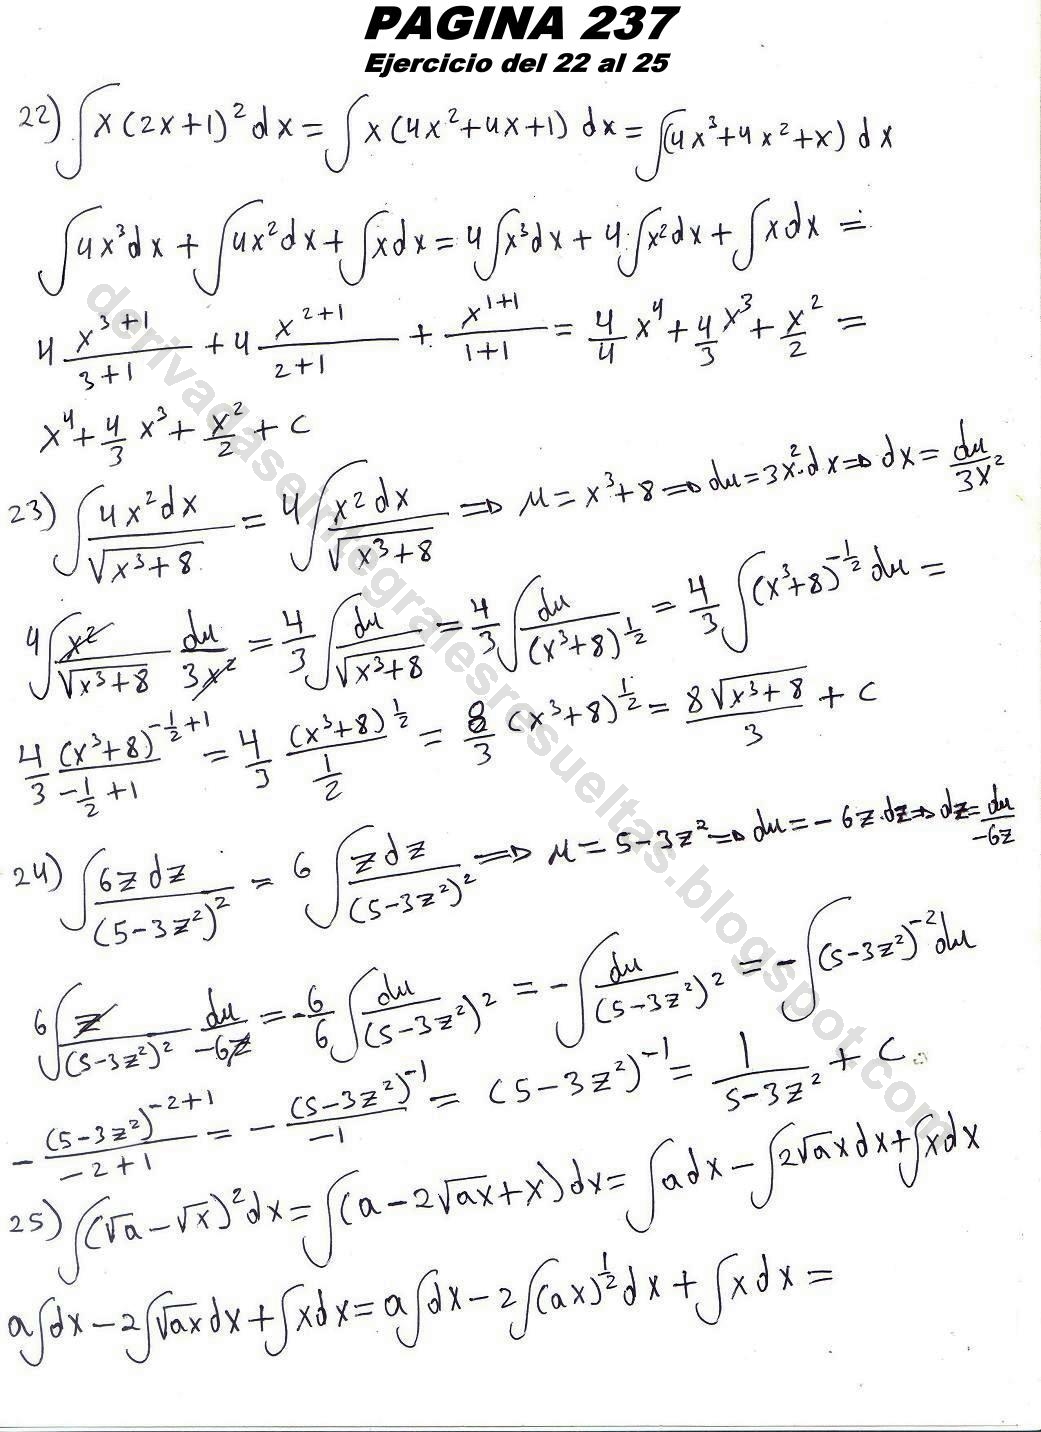 PAGINA 237
Ejercicio del 22 al 25
22) ∫x(2x+1)² dx = ∫x(4x²+4x+1) dx = ∫(4x³+4x²+x) dx
∫4x³dx + ∫4x²dx + ∫xdx = 4∫x³dx + 4∫x²dx + ∫xdx =
4 x³⁺¹/(3+1) + 4 x²⁺¹/(2+1) + x¹⁺¹/(1+1) = 4/4 x⁴ + 4/3 x³ + x²/2 =
x⁴ + 4/3 x³ + x²/2 + c
23) ∫4x²dx/√(x³+8) = 4∫x²dx/√(x³+8) ⇒ μ = x³+8 ⇒ du = 3x²·dx ⇒ dx = du/3x²
4∫x²/√(x³+8) du/3x² = 4/3 ∫du/√(x³+8) = 4/3 ∫du/(x³+8)^(1/2) = 4/3 ∫(x³+8)^(-1/2) du =
4/3 (x³+8)^(-1/2+1)/(-1/2+1) = 4/3 (x³+8)^(1/2)/(1/2) = 8/3 (x³+8)^(1/2) = 8√(x³+8)/3 + c
24) ∫6z dz/(5-3z²)² = 6∫z dz/(5-3z²)² ⇒ μ = 5-3z² ⇒ du = -6z·dz ⇒ dz = du/-6z
6∫z/(5-3z²)² du/-6z = -6/6 ∫du/(5-3z²)² = -∫du/(5-3z²)² = -∫(5-3z²)⁻² du
-(5-3z²)⁻²⁺¹/(-2+1) = -(5-3z²)⁻¹/-1 = (5-3z²)⁻¹ = 1/(5-3z²) + c
25) ∫(√a-√x)² dx = ∫(a-2√ax+x) dx = ∫a dx - ∫2√ax dx + ∫xdx
a∫dx - 2∫√ax dx + ∫xdx = a∫dx - 2∫(ax)^(1/2) dx + ∫xdx =
derivadaseintegralesresueltas.blogspot.com